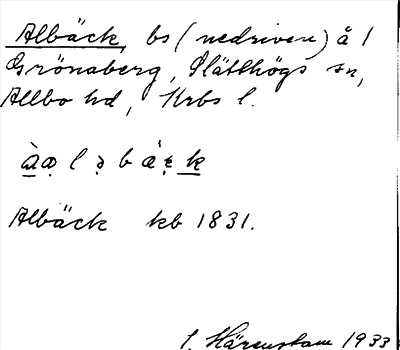 Albäck, bs (nedriven) å /
Grönaberg, Slätthögs sn,
Allbo hd, Krbs l.
Albäck kb 1831.
Härenstam 1933